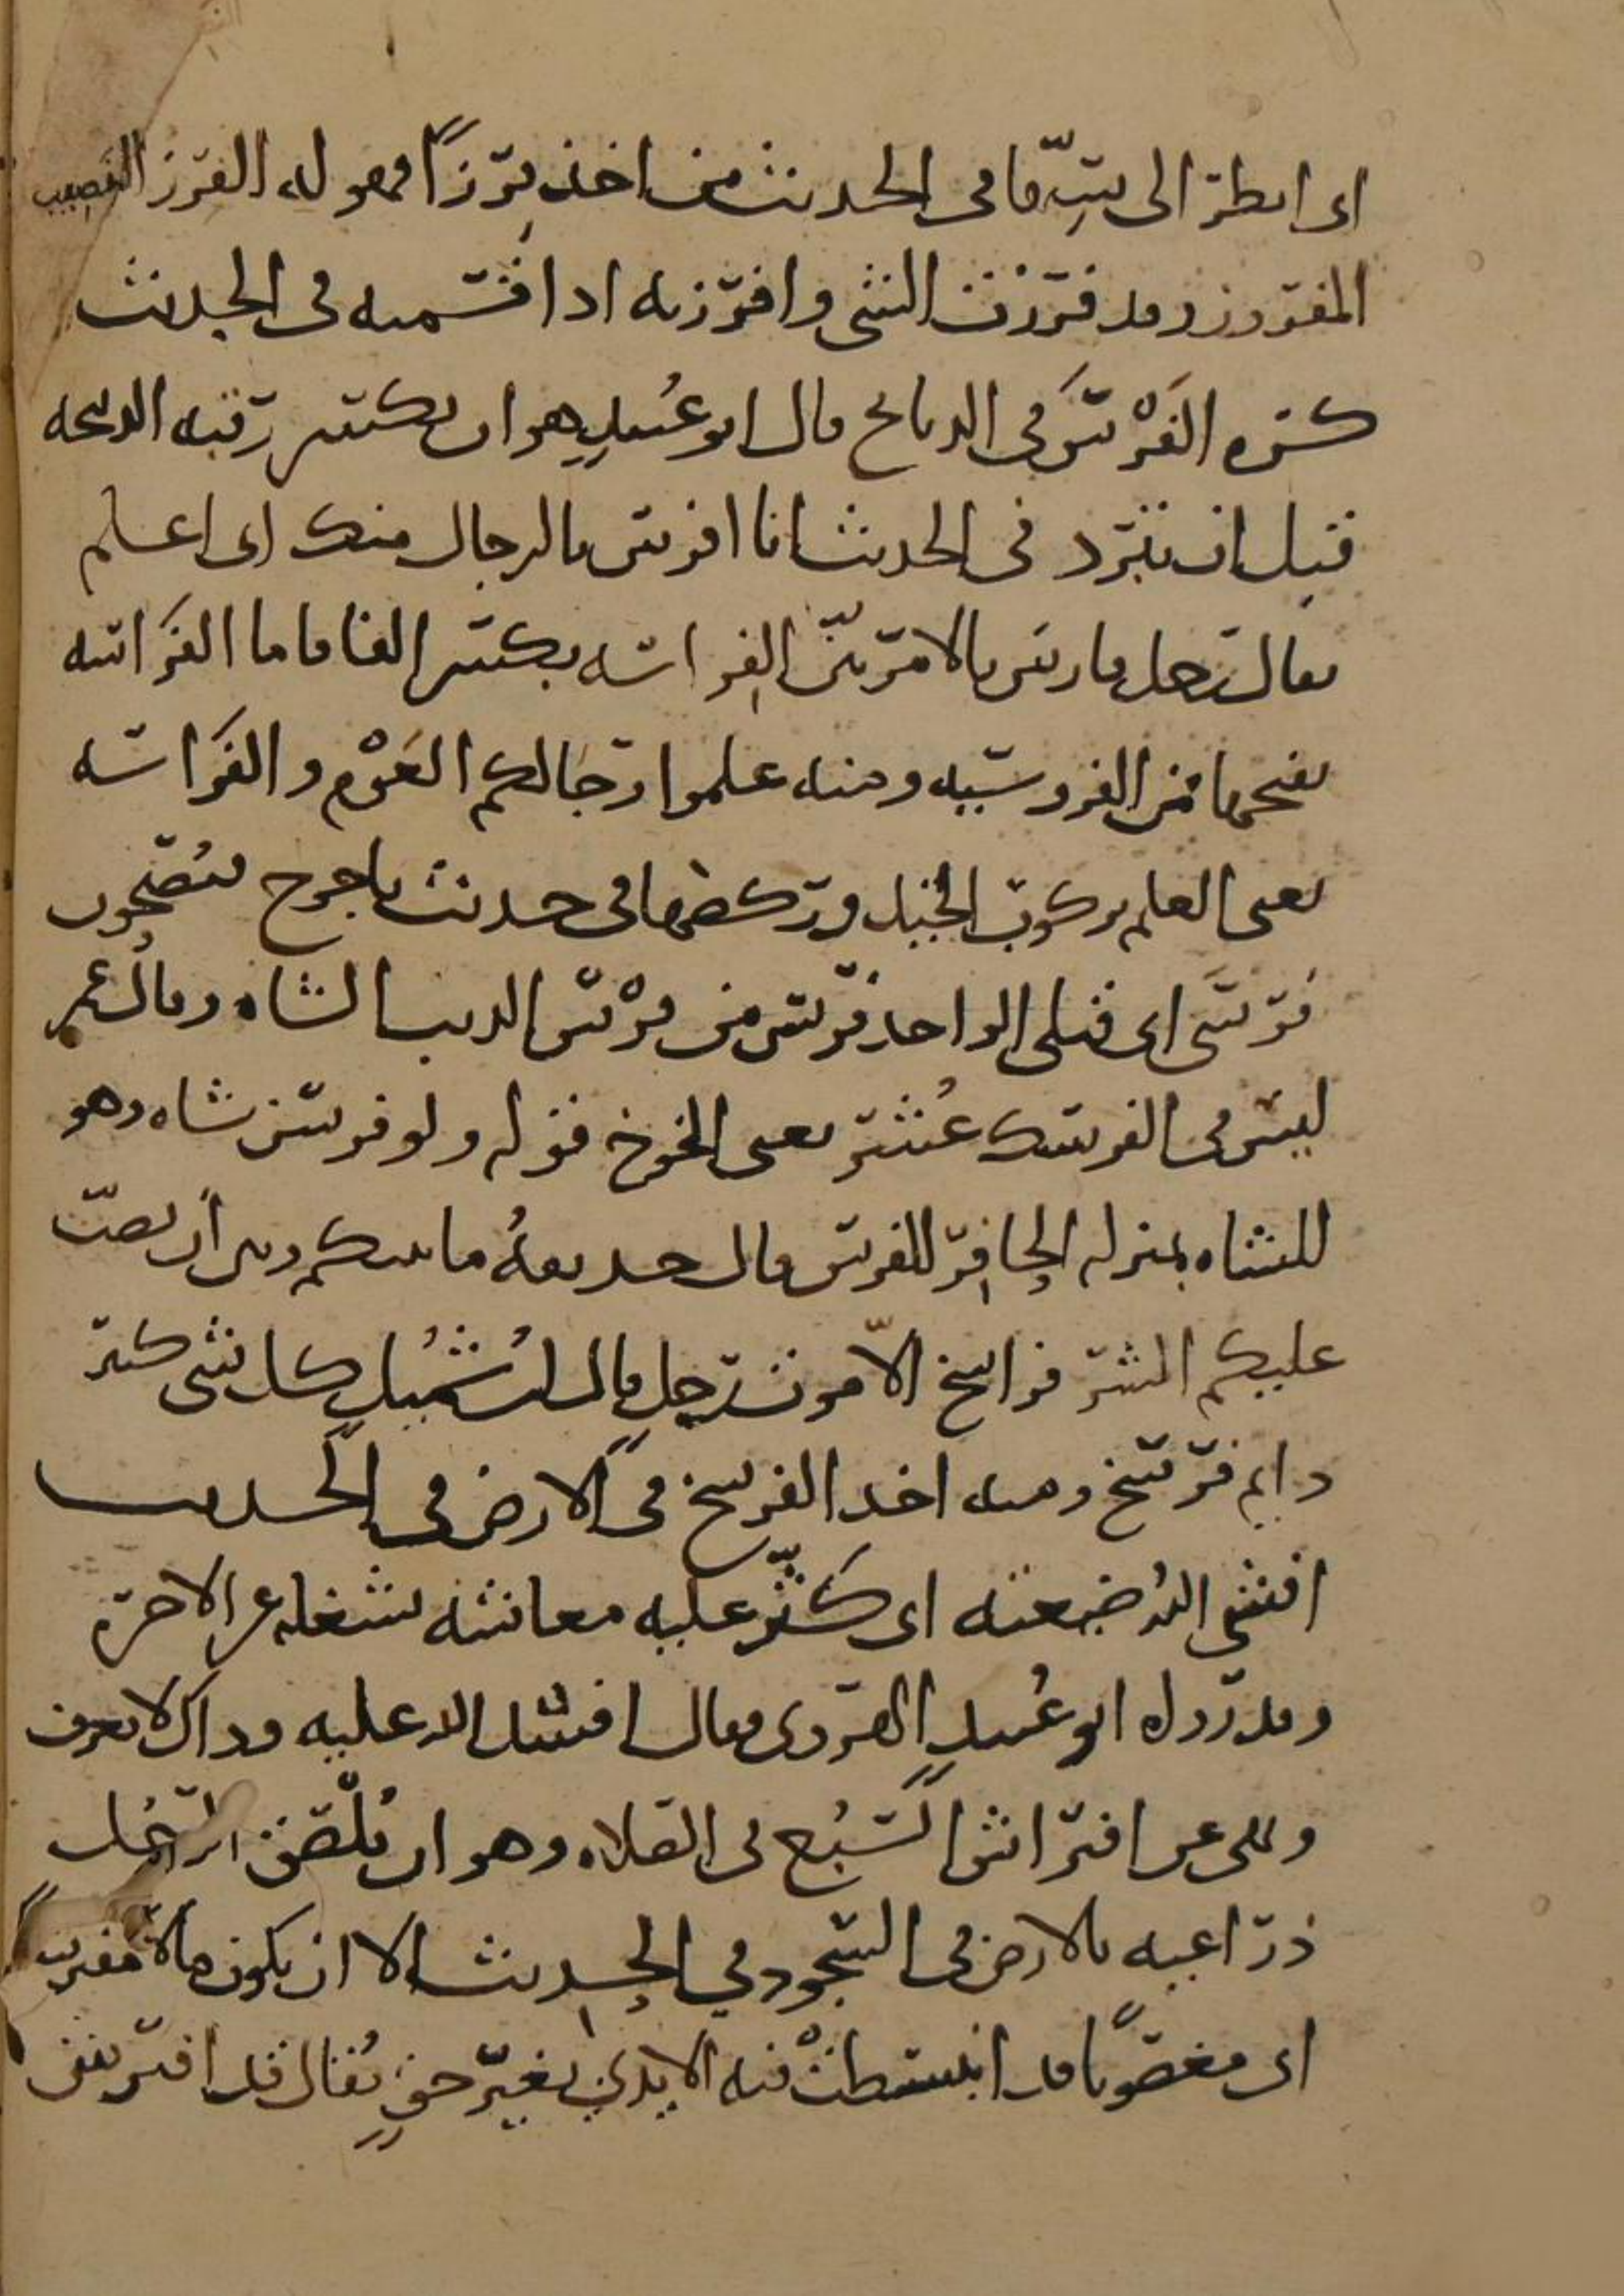 اى انظر الى سِنّها فى الحديث من اخذ فِرزًا فهو له الفرز النصيب
المفروز وقد فرزت الشى وافرزته اذا قسمته فى الحديث
كره الفَرْسَ فى الذبايح قال ابو عُبيد هو ان يكسر رقبة الذبيحة
قبل ان تبرد فى الحديث انا افرس بالرجال منك اى اعلم
يقال رجل فارس بالامر بيّن الفِراسه بكسر الفا فاما الفَراسه
بفتحها فمن الفروسيه ومنه علموا رجالكم العَوْم والفَراسه
يعنى العلم بركوب الخيل وركضها فى حديث ياجوج فيُصْبحون
فَرْسَى اى قتلى الواحد فريس من فرْس الذيب الشاه وقال عمر
ليس فى الفرسك عُشْر يعنى الخوخ قوله ولو فرسن شاه وهو
للشاه بمنزله الحافر للفرس قال حذيفهُ ما بينكم وبين أن يصبّ
عليكم الشر فراسخ الاّ موت رجل قال ابن شُمَيل كل شى كثير
دايم فرسخ ومنه اخذ الفرسخ فى الارض فى الحديث
افشى اللهُ ضيعته اى كَثّر عليه معاشه ليشغله عن الاخره
وقد رواه ابو عُبيد الهروى فقال افشد الله عليه وذاك لا يعرف
ونهى عن افتراش السَّبُع فى الصلاه وهو ان يُلْصق الرجُل
ذراعيه بالارض فى السجود فى الحديث الا ان يكون مالاً مفترشًا
اى مغصوبًا قد انبسطتْ فيه الايدي بغير حقٍ يُقال قد افترش